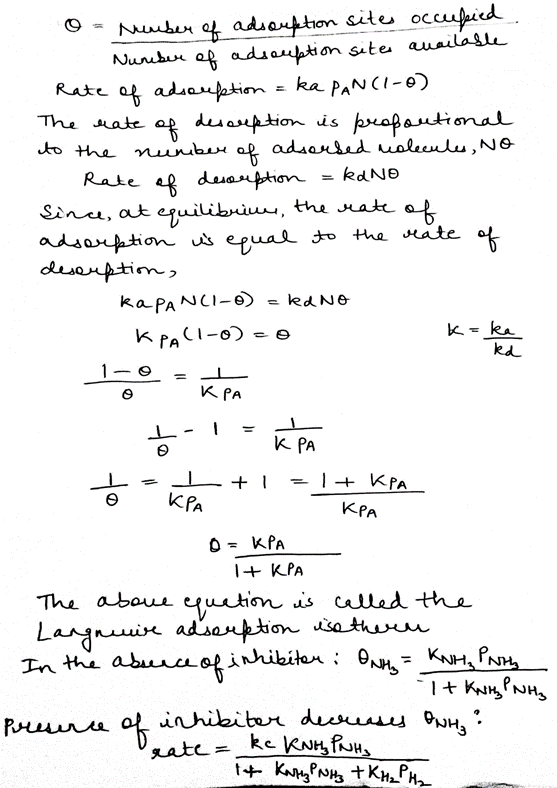 θ = Number of adsorption sites occupied
Number of adsorption sites available
Rate of adsorption = ka PA N(1-θ)
The rate of desorption is proportional
to the number of adsorbed molecules, Nθ
Rate of desorption = kd Nθ
Since, at equilibrium, the rate of
adsorption is equal to the rate of
desorption,
ka PA N(1-θ) = kd Nθ
K PA (1-θ) = θ K = ka/kd
1-θ/θ = 1/K PA
1/θ - 1 = 1/K PA
1/θ = 1/KPA + 1 = 1 + KPA/KPA
θ = KPA/1 + KPA
The above equation is called the
Langmuir adsorption isotherm
In the absence of inhibitor : θNH3 = KNH3 PNH3/1 + KNH3 PNH3
Presence of inhibitor decreases θNH3 :
rate = kc KNH3 PNH3/1 + KNH3 PNH3 + KH2 PH2